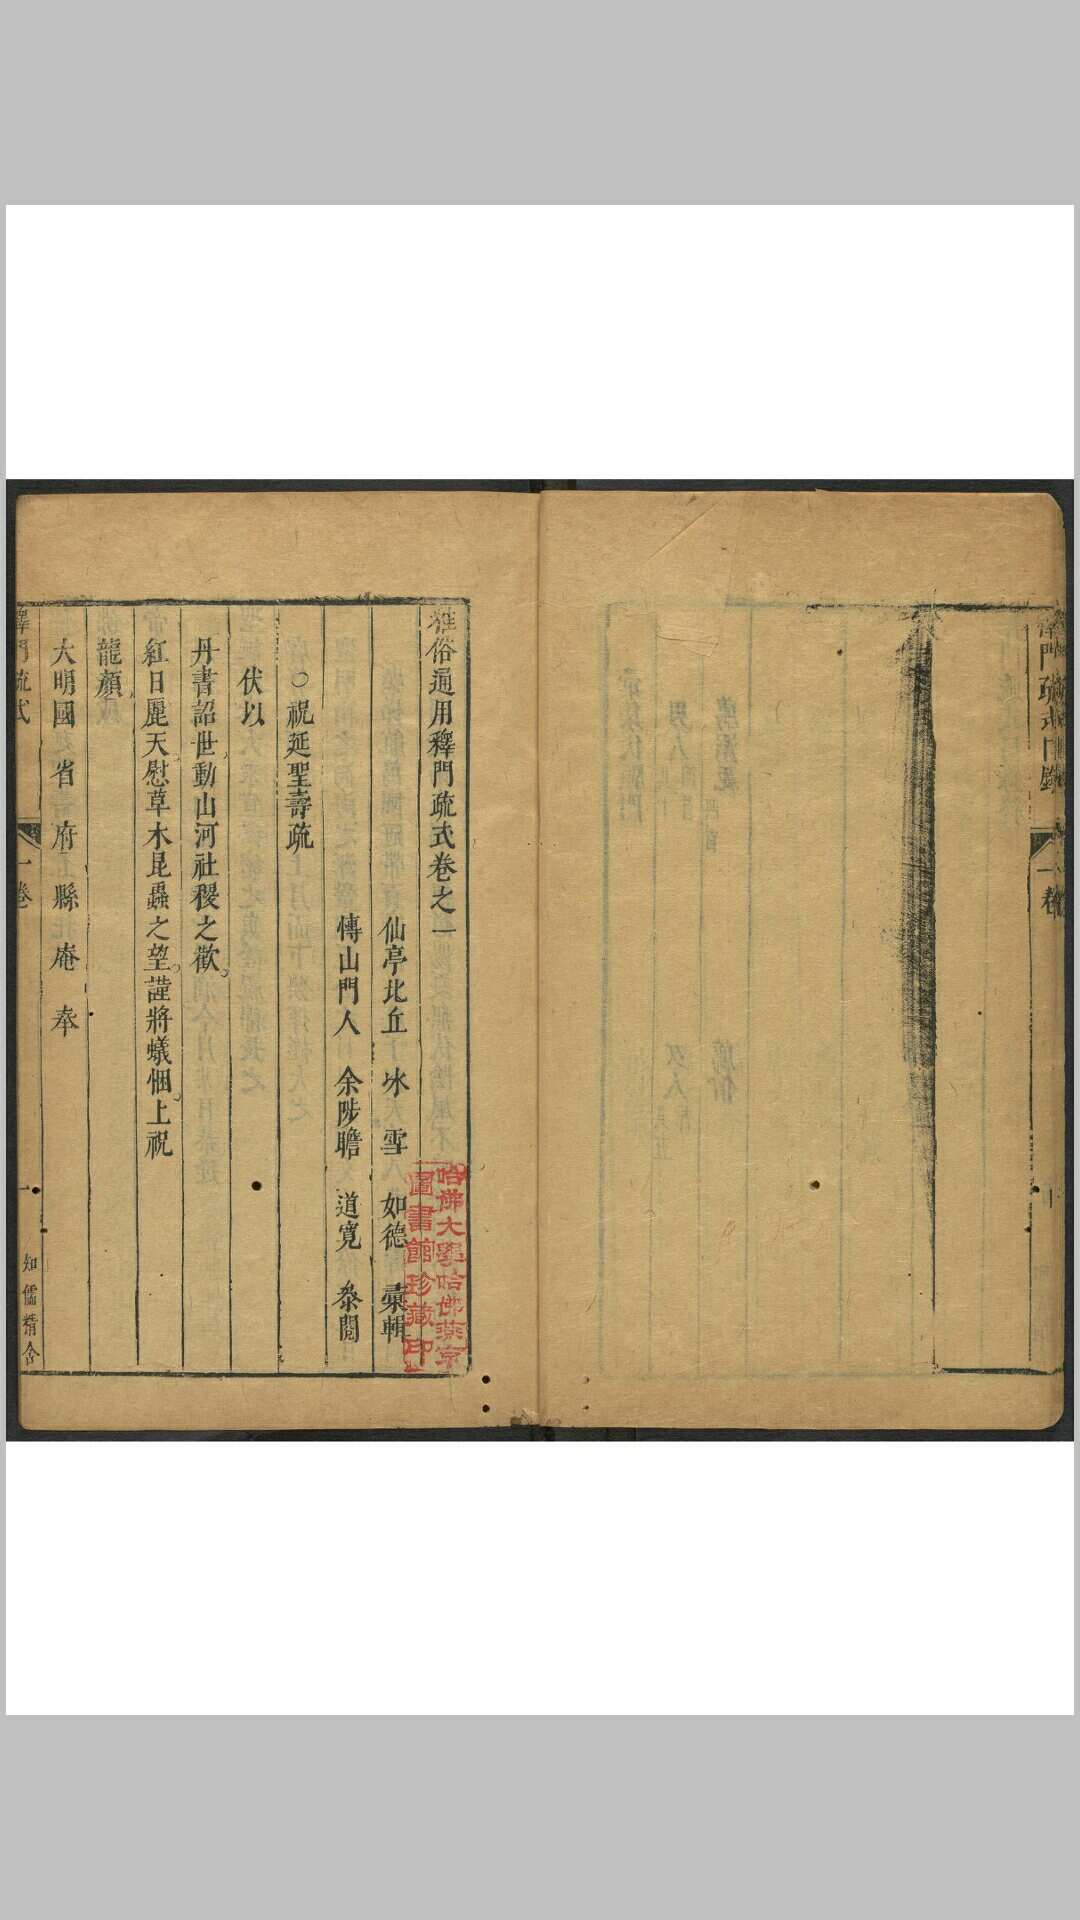 一卷
雅俗通用釋門疏式卷之一
仙亭比丘 氷雪 如德 彙輯
傳山門人 余陟瞻 道寬 叅閱
○祝延聖壽疏
伏以
丹書詔世動山河社稷之歡。
紅日麗天慰草木昆蟲之望。謹將蟻悃。上祝
龍顏
大明國 省 府 縣 庵 奉
釋門疏式 一卷 一 知儒精舍
哈佛大學哈佛燕京
圖書館珍藏印